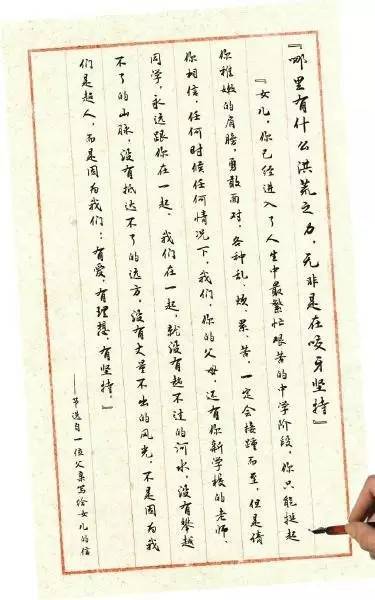 『哪里有什么洪荒之力，无非是在咬牙坚持』
『女儿，你已经进入了人生中最繁忙艰苦的中学阶段，你只能挺起
你稚嫩的肩膀，勇敢面对，各种乱、烦、累、苦，一定会接踵而至，但是请
你相信，任何时候任何情况下，我们，你的父母，还有你新学校的老师、
同学，永远跟你在一起，我们在一起，就没有趟不过的河水，没有攀越
不了的山脉，没有抵达不了的远方，没有丈量不出的风光，不是因为我
们是超人，而是因为我们：有爱，有理想，有坚持。』
——节选自一位父亲写给女儿的信